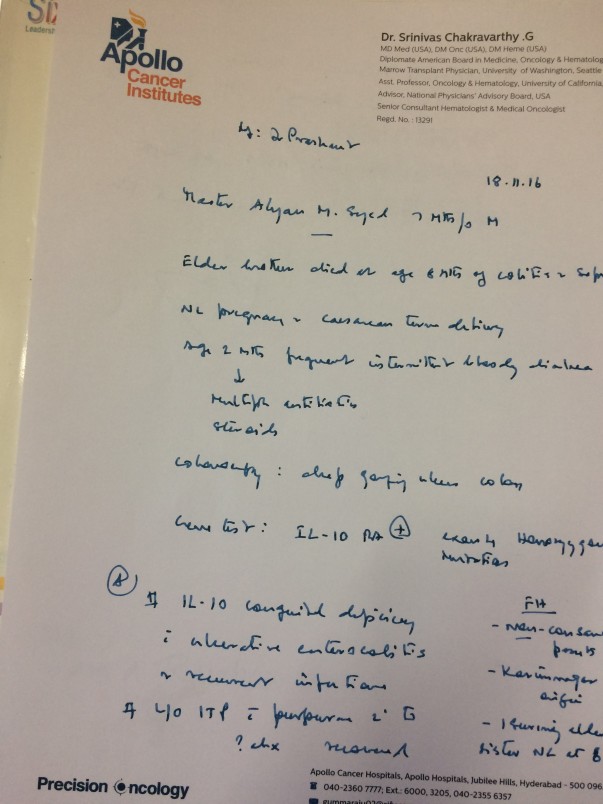 SL
Leaders
Apollo
Cancer
Institutes
Dr. Srinivas Chakravarthy .G
MD Med (USA), DM Onc (USA), DM Heme (USA)
Diplomate American Board in Medicine, Oncology & Hematolog
Marrow Transplant Physician, University of Washington, Seattle
Asst. Professor, Oncology & Hematology, University of California,
Advisor, National Physicians' Advisory Board, USA
Senior Consultant Hematologist & Medical Oncologist
Regd. No. : 13291
18.11.16
Master Alyan M. Syed 7 mths/o M
Elder brother died at age 8 mths of colitis
NL pregnancy caesarean term delivery
Age 2 mths frequent intermittent bloody diarrhea
↓
multiple antibiotics
steroids
colonoscopy : deep ulcers colon
Gene test : IL-10 RA + exon 4 Homozygous
mutation
A
# IL-10 congenital deficiency
c ulcerative enterocolitis
recurrent infections
# h/o ITP c purpura
? recovered
FH
- Non-consan
parents
- Karimnagar
origin
sister NL at 8
Precision Oncology
Apollo Cancer Hospitals, Apollo Hospitals, Jubilee Hills, Hyderabad - 500 096
040-2360 7777; Ext.: 6000, 3205, 040-2355 6357